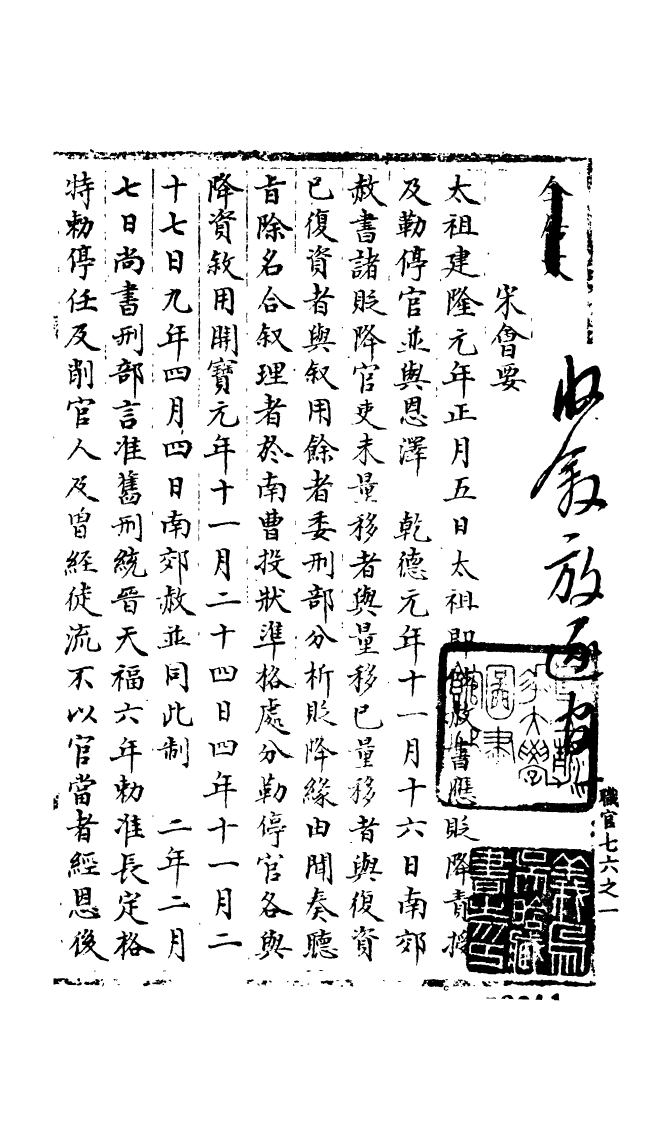 收叙放逐官
宋會要
太祖建隆元年正月五日太祖即位赦書應貶降責授
及勒停官並與恩澤　乾德元年十一月十六日南郊
赦書諸貶降官吏未量移者與量移已量移者與復資
已復資者與叙用餘者委刑部分析貶降緣由聞奏聽
旨除名合叙理者於南曹投狀準格處分勒停官各與
降資敘用開寶元年十一月二十四日四年十一月二
十七日九年四月四日南郊赦並同此制　二年二月
七日尚書刑部言准舊刑統晉天福六年勅准長定格
特勅停任及削官人及曾經徒流不以官當者經恩後
職官七六之一